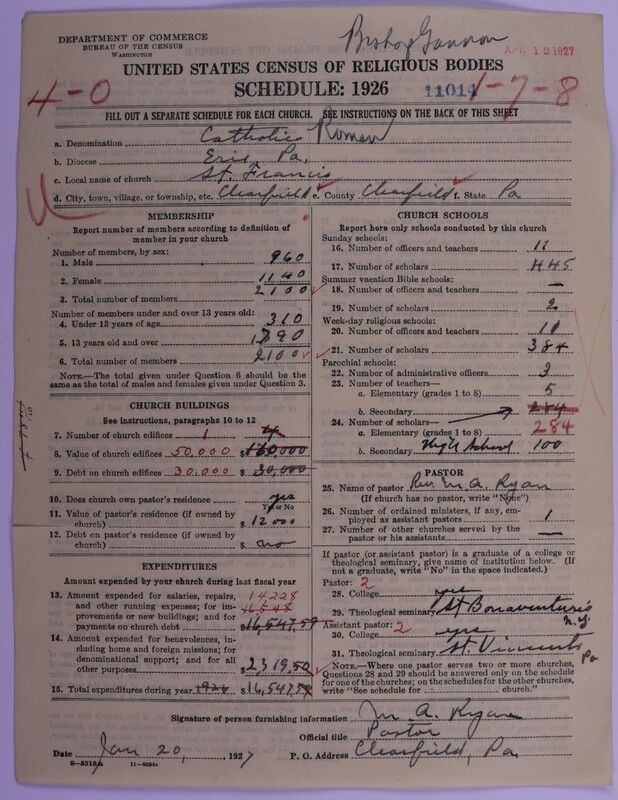 Bishop Gannon
DEPARTMENT OF COMMERCE
BUREAU OF THE CENSUS
WASHINGTON
APR 12 1927
UNITED STATES CENSUS OF RELIGIOUS BODIES
SCHEDULE: 1926
4-0
11014
1-7-8
FILL OUT A SEPARATE SCHEDULE FOR EACH CHURCH. SEE INSTRUCTIONS ON THE BACK OF THIS SHEET
a. Denomination Catholic Roman
b. Diocese Erie, Pa.
c. Local name of church St. Francis
d. City, town, village, or township, etc. Clearfield e. County Clearfield f. State Pa
MEMBERSHIP
Report number of members according to definition of member in your church
Number of members, by sex:
1. Male 960
2. Female 1140
3. Total number of members 2100
Number of members under and over 13 years old:
4. Under 13 years of age 310
5. 13 years old and over 1790
6. Total number of members 2100
NOTE.—The total given under Question 6 should be the same as the total of males and females given under Question 3.
CHURCH BUILDINGS
See instructions, paragraphs 10 to 12
7. Number of church edifices 1 4
8. Value of church edifices 50,000 $ 160,000
9. Debt on church edifices 30,000 $ 30,000
10. Does church own pastor's residence yes
Yes or No
11. Value of pastor's residence (if owned by church) $ 12000
12. Debt on pastor's residence (if owned by church) $ no
EXPENDITURES
Amount expended by your church during last fiscal year
13. Amount expended for salaries, repairs, and other running expenses; for improvements or new buildings; and for payments on church debt 14228 16,548 $ 16,547.59
14. Amount expended for benevolences, including home and foreign missions; for denominational support; and for all other purposes $ 2319.50
15. Total expenditures during year 1926 $ 16,547.59
CHURCH SCHOOLS
Report here only schools conducted by this church
Sunday schools:
16. Number of officers and teachers 11
17. Number of scholars 445
Summer vacation Bible schools:
18. Number of officers and teachers —
19. Number of scholars 2
Week-day religious schools:
20. Number of officers and teachers 10
21. Number of scholars 384
Parochial schools:
22. Number of administrative officers 3
23. Number of teachers—
a. Elementary (grades 1 to 8) 5
b. Secondary 284
24. Number of scholars—
a. Elementary (grades 1 to 8) 284
b. Secondary High School 100
PASTOR
25. Name of pastor Rev. M. A. Ryan
(If church has no pastor, write "None")
26. Number of ordained ministers, if any, employed as assistant pastors 1
27. Number of other churches served by the pastor or his assistants —
If pastor (or assistant pastor) is a graduate of a college or theological seminary, give name of institution below. (If not a graduate, write "No" in the space indicated.)
Pastor: 2
28. College yes
29. Theological seminary St Bonaventure's N.Y.
Assistant pastor: 2
30. College yes
31. Theological seminary St. Vincents Pa
NOTE.—Where one pastor serves two or more churches, Questions 28 and 29 should be answered only on the schedule for one of the churches; on the schedules for the other churches, write "See schedule for church."
Signature of person furnishing information M. A. Ryan
Official title Pastor
Date Jan 20, 1927
P. O. Address Clearfield, Pa.
8-5518a